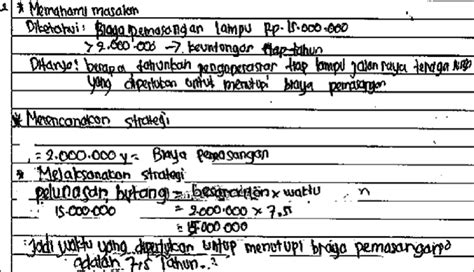 * Memahami masalah
Diketahui: Biaya pemasangan lampu Rp. 15.000.000
> 2.000.000 → keuntongan tiap tahun
Ditanya: berapa tahunkah pengoperasian tiap lampu jalan raya tenaga
yang diperlukan untuk menutupi biaya pemasangan
* Merencanakan strategi
= 2.000.000 y = Biaya pemasangan
* Melaksanakan strategi
pelunasan hutang = besar x waktu n
15.000.000 = 2.000.000 x 7,5
= 15.000.000
Jadi waktu yang diperlukan untup menutupi biaya pemasangan
adalah 7,5 Tahun..